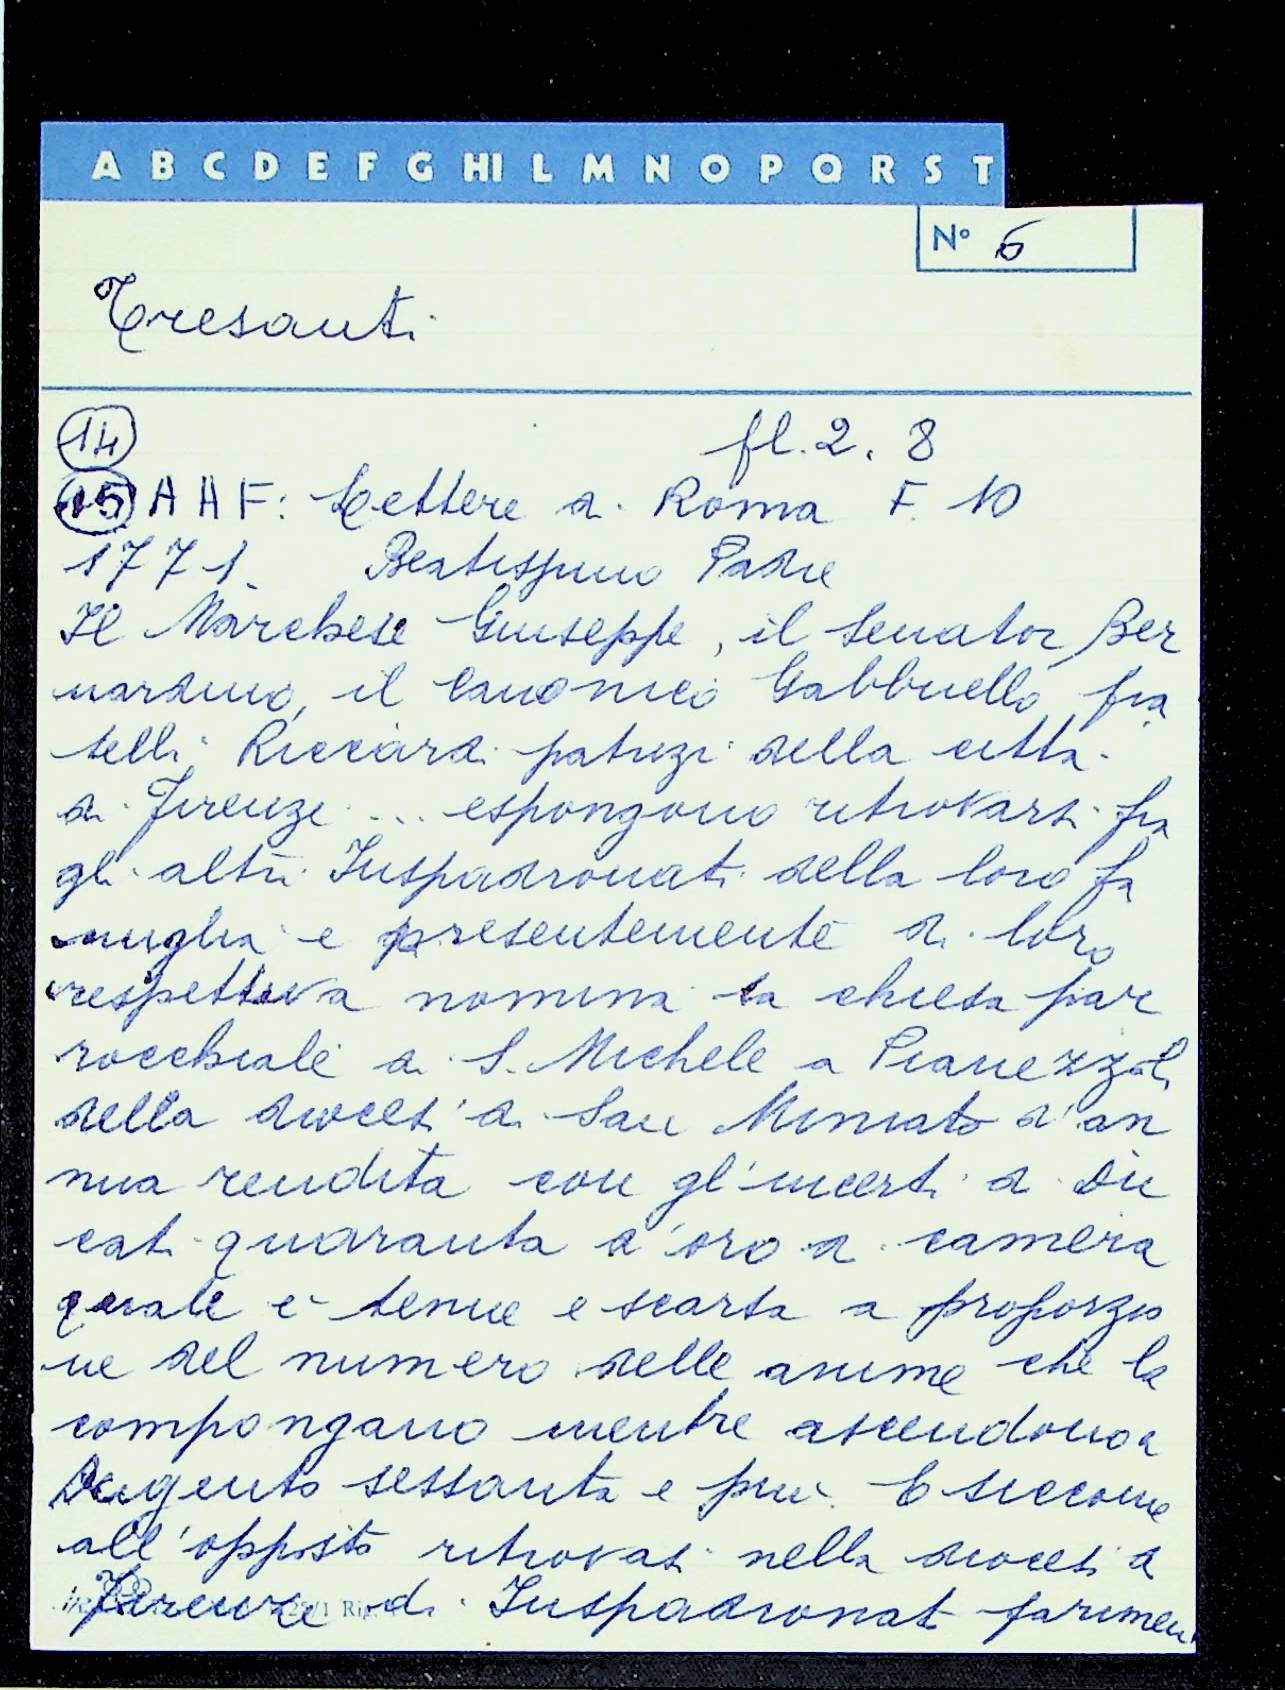 A B C D E F G HI L M N O P Q R S T
N° 6
Tresanti
14 fl. 2. 8
15 A A F: Lettere di Roma F. 10
1771. Beatissimo Padre
Il Marchese Giuseppe, il Senator Ber
nardino, il Canonico Gabbriello, fra
telli Riccardi patrizi della citta
di Firenze ... espongono ritrovarsi fra
gli altri Juspadronati della loro fa
miglia e presentemente di loro
respettiva nomina la chiesa par
rocchiale di S. Michele a Pianezzoli
della diocesi di San Miniato d'an
nua rendita con gl'incerti di Du
cati quaranta d'oro di camera
quale è tenue e scarsa a proporzio
ne del numero delle anime che la
compongano mentre ascendono a
Dugento sessanta e piu. E siccome
all'opposto ritrovasi nella diocesi di
Firenze di Juspadronato parimen